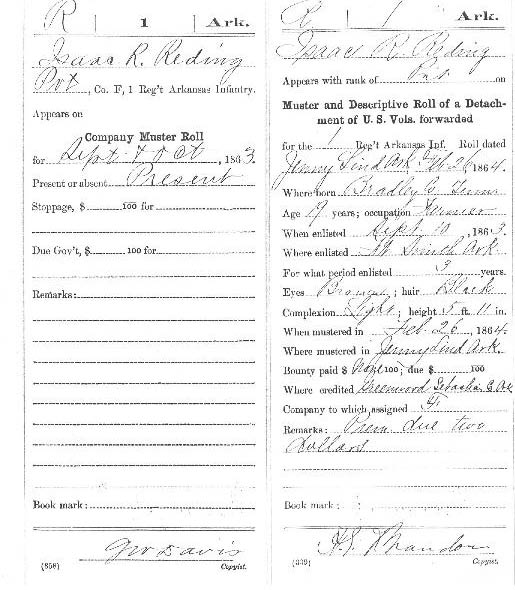 R 1 Ark.
Isaac R. Reding
Pvt, Co. F, 1 Reg't Arkansas Infantry.
Appears on
Company Muster Roll
for Sept & Oct, 1863.
Present or absent Present
Stoppage, $ 100 for
Due Gov't, $ 100 for
Remarks:
Book mark:
Gw Davis
(858) Copyist.
R 1 Ark.
Isaac R. Reding
Appears with rank of Pvt on
Muster and Descriptive Roll of a Detach-
ment of U. S. Vols. forwarded
for the 1 Reg't Arkansas Inf. Roll dated
Jenny Lind Ark Feb 26, 1864.
Where born Bradley Co. Tenn
Age 19 years; occupation Farmer
When enlisted Sept 10, 1863.
Where enlisted Ft Smith Ark
For what period enlisted 3 years.
Eyes Brown; hair Black
Complexion Light; height 5 ft. 11 in.
When mustered in Feb. 26, 1864.
Where mustered in Jenny Lind Ark.
Bounty paid $ None 100; due $ 100
Where credited Greenwood Sebastian Co Ark
Company to which assigned F
Remarks: Prem. due two
dollars
Book mark:
(339) Copyist.